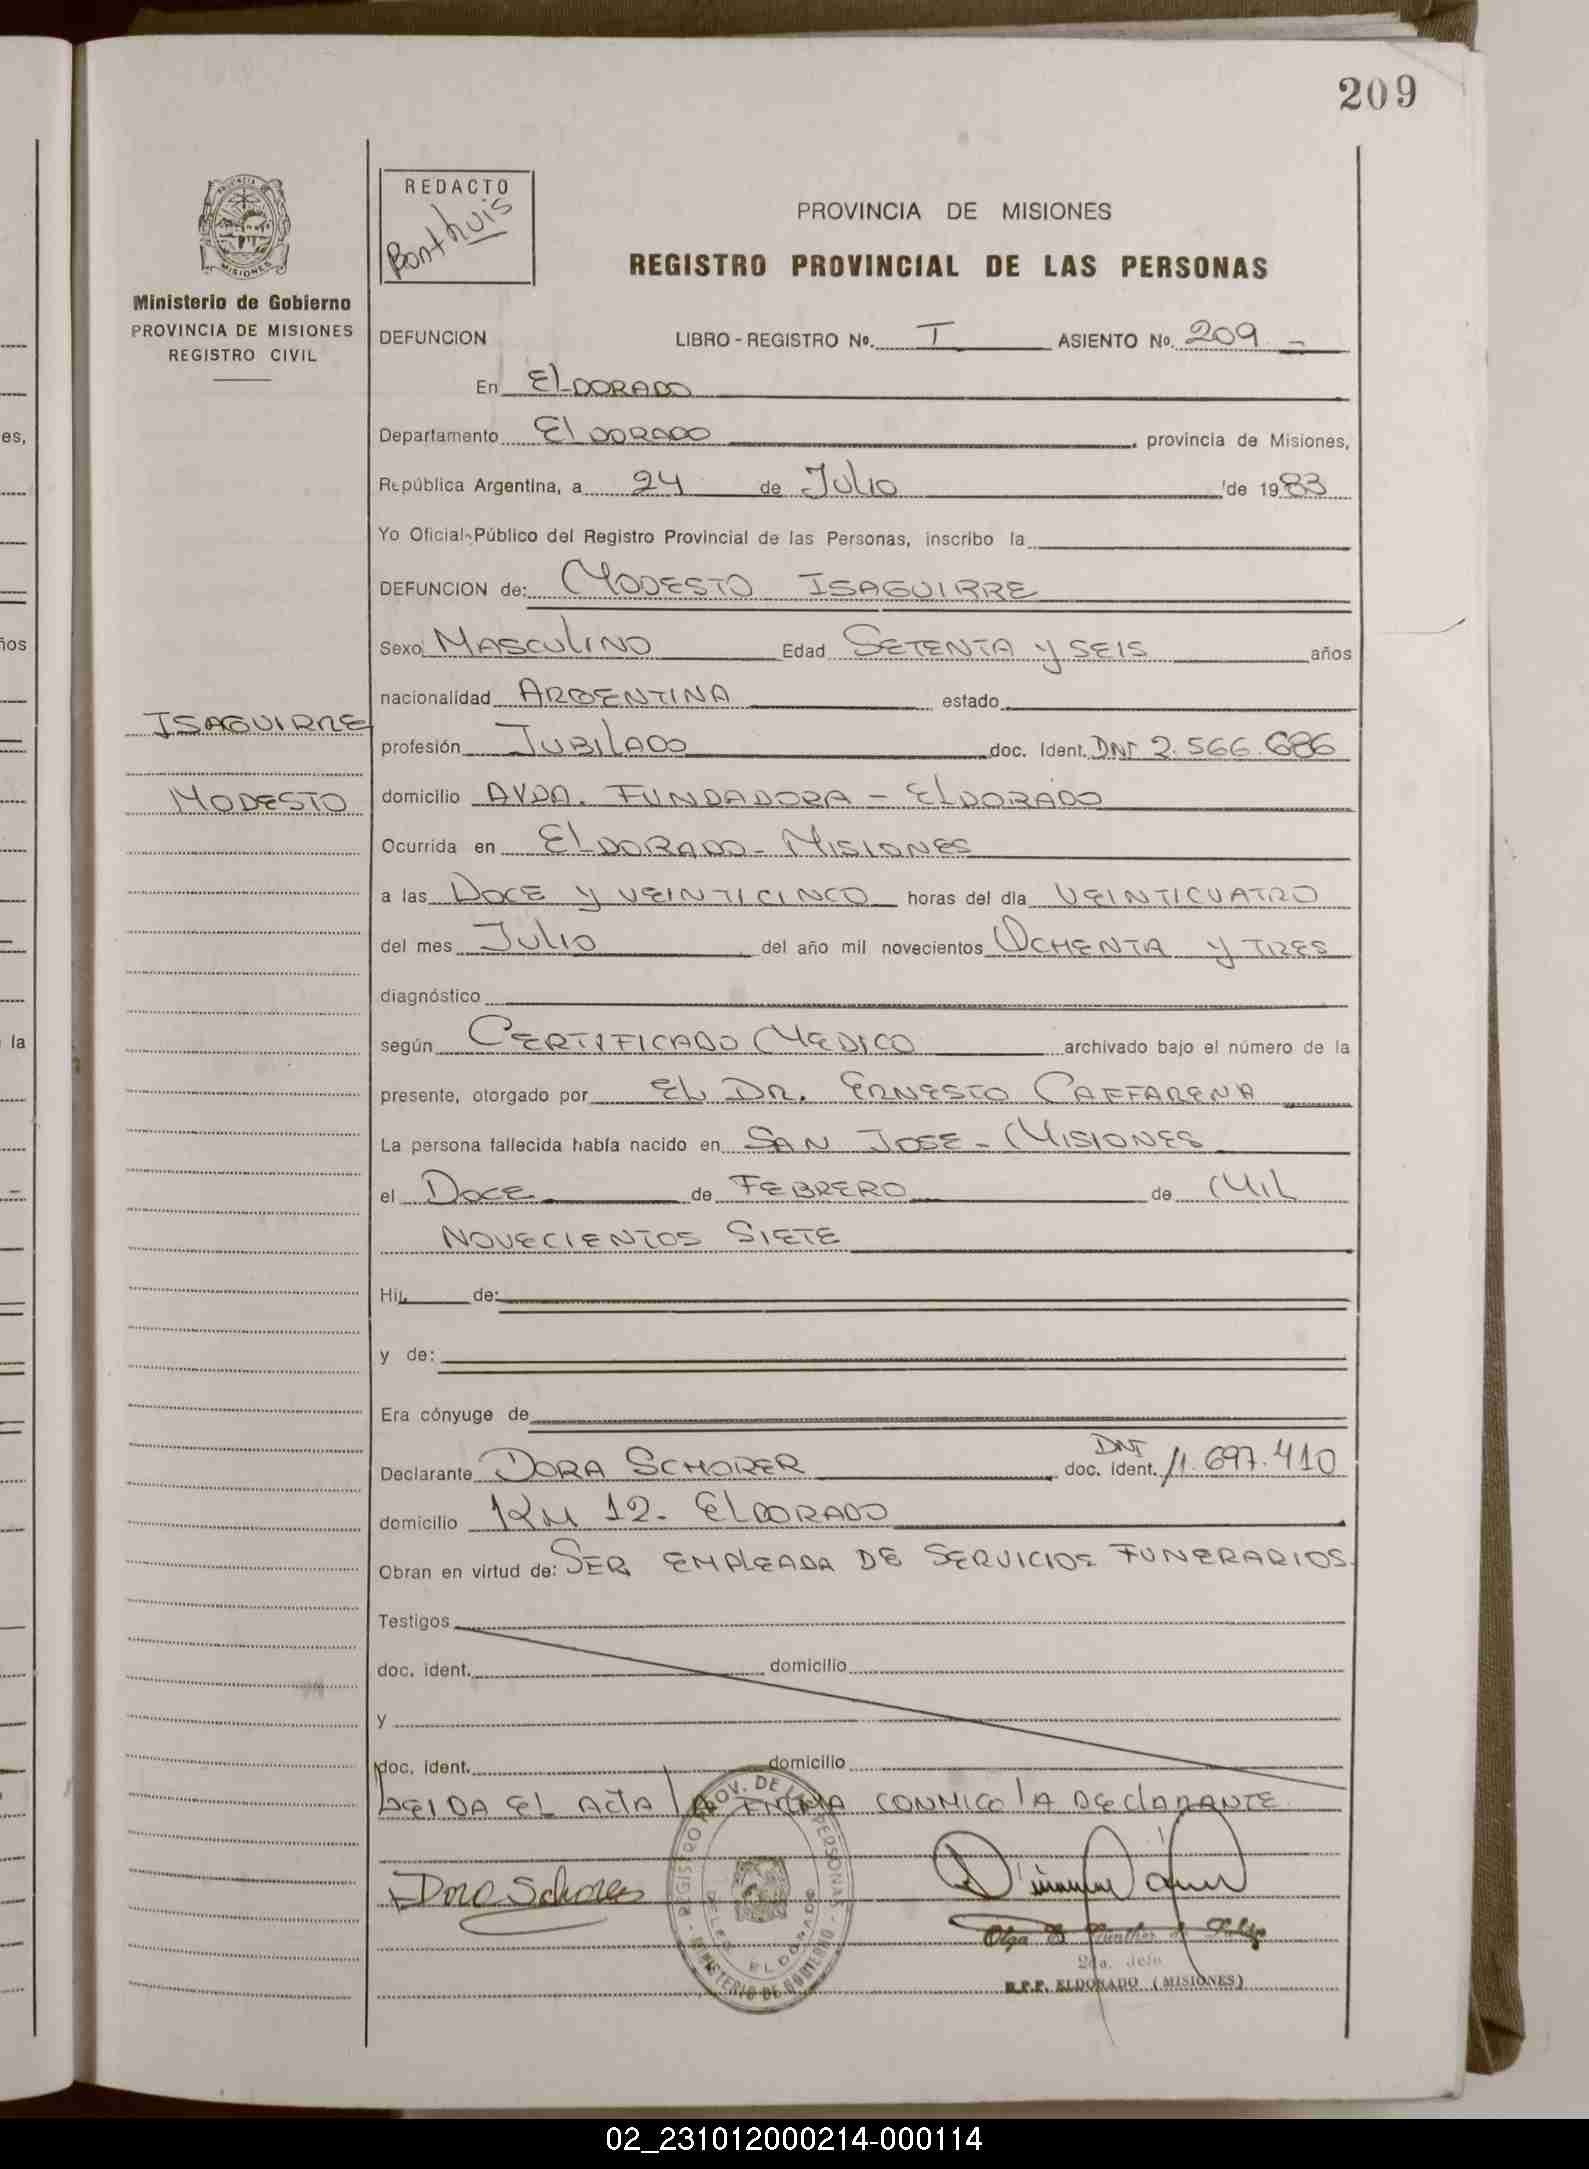 209
PROVINCIA DE MISIONES
REGISTRO PROVINCIAL DE LAS PERSONAS
REDACTO
Bonthuis
Ministerio de Gobierno
PROVINCIA DE MISIONES
REGISTRO CIVIL
DEFUNCION LIBRO - REGISTRO No. I ASIENTO No. 209 -
En ELDORADO
Departamento ELDORADO, provincia de Misiones,
República Argentina, a 24 de JULIO de 1983
Yo Oficial Público del Registro Provincial de las Personas, inscribo la
DEFUNCION de: MODESTO ISAGUIRRE
Sexo MASCULINO Edad SETENTA Y SEIS años
nacionalidad ARGENTINA estado
ISAGUIRRE
MODESTO
profesión JUBILADO doc. Ident. DNI 2.566.686
domicilio AVDA. FUNDADORA - ELDORADO
Ocurrida en ELDORADO - MISIONES
a las DOCE Y VEINTICINCO horas del día VEINTICUATRO
del mes JULIO del año mil novecientos OCHENTA Y TRES
diagnóstico
según CERTIFICADO MEDICO archivado bajo el número de la
presente, otorgado por EL DR. ERNESTO CAFFARENA
La persona fallecida había nacido en SAN JOSE - MISIONES
el DOCE de FEBRERO de MIL
NOVECIENTOS SIETE
Hij de:
y de:
Era cónyuge de
Declarante DORA SCHORER doc. ident. DNI 11.697.410
domicilio KM 12 - ELDORADO
Obran en virtud de: SER EMPLEADA DE SERVICIOS FUNERARIOS.
Testigos
doc. ident. domicilio
y
doc. ident. domicilio
LEIDA EL ACTA LA FIRMA CONMIGO LA DECLARANTE
Dora Schorer
REGISTRO PROV. DE LAS PERSONAS - MINISTERIO DE GOBIERNO
ELDORADO
Olga
2da. Jefe
R.P.P. ELDORADO (MISIONES)
es,
ños
la
02_231012000214-000114